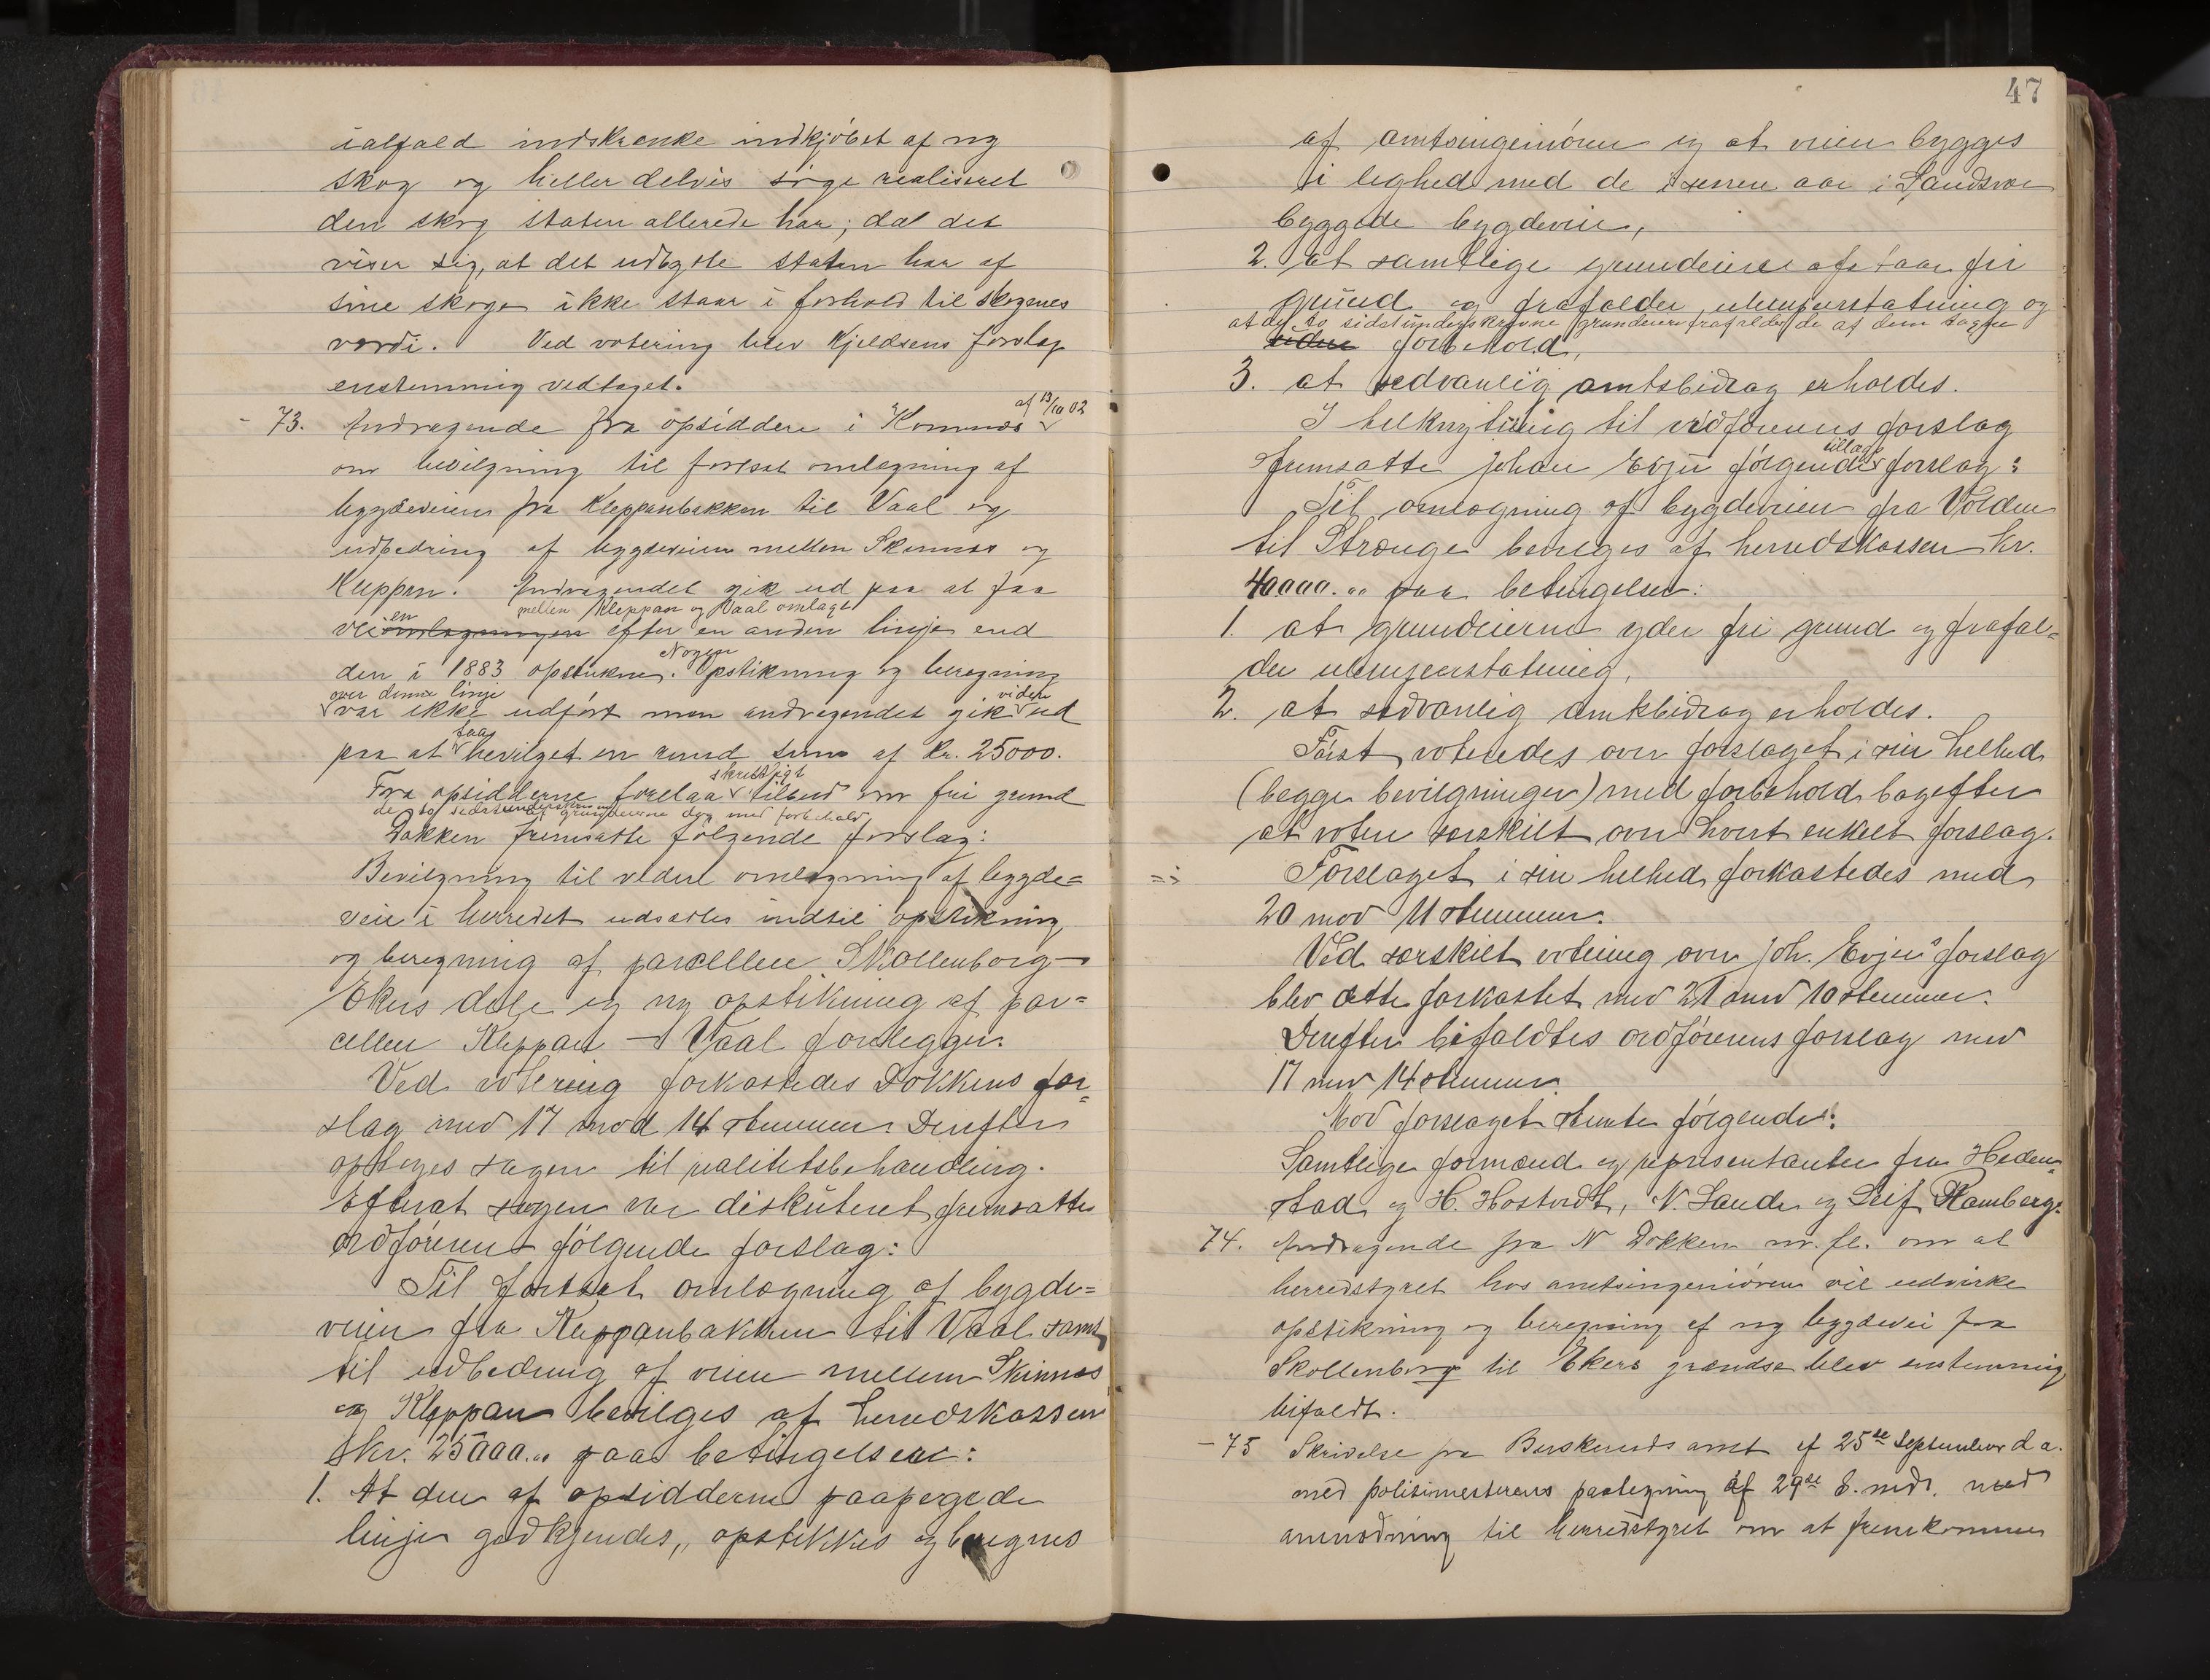 ialfald indskrænke indkjøbet af ny
skog og heller delvis søge realiseret
den skog staten allerede har; da det
viser sig, at det udbytte staten har af
sine skoge ikke staar i forhold til skogenes
værdi. Ved votering blev Kjeldsens forslag
enstemmig vedtaget.
- 73. Andragende fra opsiddere i Komnæs af 13/10 02
om bevilgning til fortsat omlægning af
bygdeveien fra Kleppanbakken til Vaal og
udbedring af bygdeveien mellem Skinnæs og
Kleppan. Andragendet gik ud paa at faa
mellem Kleppan og Vaal omlagt
veien efter en anden linje end
den i 1883 opstukne. Nogen Opstikning og beregning
over denne linje viden
var ikke udført men andragendet gik ud
paa at faa bevilget en rund sum af kr. 25000.
skriftligt
Fra opsidderne forelaa tilbud om fri grund
de to sidstunderskrevne grundeiere dog med forbehold
Dokken fremsatte følgende forslag:
Bevilgning til videre omlægning af bygde=
vei i herredet udsættes indtil opstikning
og beregning af parcellen Skollenborg -
Ekers dele og ny opstikning af par=
cellen Kleppan - Vaal foreligger.
Ved votering forkastedes Dokkens for=
slag med 17 mod 14 stemmer. Derefter
optoges sagen til realitetsbehandling.
Efterat sagen var diskuteret fremsatte
ordføreren følgende forslag:
Til fortsat omlægning af bygde=
veien fra Kleppanbakken til Vaal samt
til udbedring af veien mellem Skinnæs
og Kleppan bevilges af herredskassen
kr. 25000.00 paa betingelser:
1. At den af opsidderne paapegede
linje godkjendes, opstikkes og beregnes
47
af amtsingeniøren og at veien bygges
i lighed med de i senere aar i Sandsvær
byggede bygdeveie,
2. at samtlige grundeiere afstaar fri
grund og frafalder ulempeerstatning og
at de to sidstunderskrevne grundeiere frafalder de af dem tagne
forbehold,
3. at sedvanlig amtsbidrag erholdes.
I tilknytning til ordførerens forslag
fremsatte Johan Evju følgende tillægsforslag:
Til omlægning af bygdeveien fra Volden
til Strænge bevilges af herredskassen kr.
40000.00 paa betingelser:
1. at grundeierne yder fri grund og frafal=
der ulempeerstatning,
2. at sedvanlig amtsbidrag erholdes.
Først voteredes over forslaget i sin helhed
(begge bevilgninger) med forbehold bagefter
at votere særskilt over hvert enkelt forslag.
Forslaget i sin helhed forkastedes med
20 mod 11 stemmer.
Ved særskilt votering over Joh. Evjus forslag
blev dette forkastet med 21 mod 10 stemmer.
Derefter bifaldtes ordførerens forslag med
17 mod 14 stemmer.
Mod forslaget stemte følgende:
Samtlige formænd og repræsentanter fra Heden=
stad og H. Hostvedt, N. Sande og Leif Ramberg.
74. Andragende fra N Dokken m. fl. om at
herredstyret hos amtsingeniøren vil udvirke
opstikning og beregning af ny bygdevei fra
Skollenborg til Ekers grændse blev enstemmig
bifaldt.
- 75 Skrivelse fra Buskeruds amt af 25de September d a.
med politimesterens paategning af 29de s. md. med
anmodning til herredstyret om at fremkomme